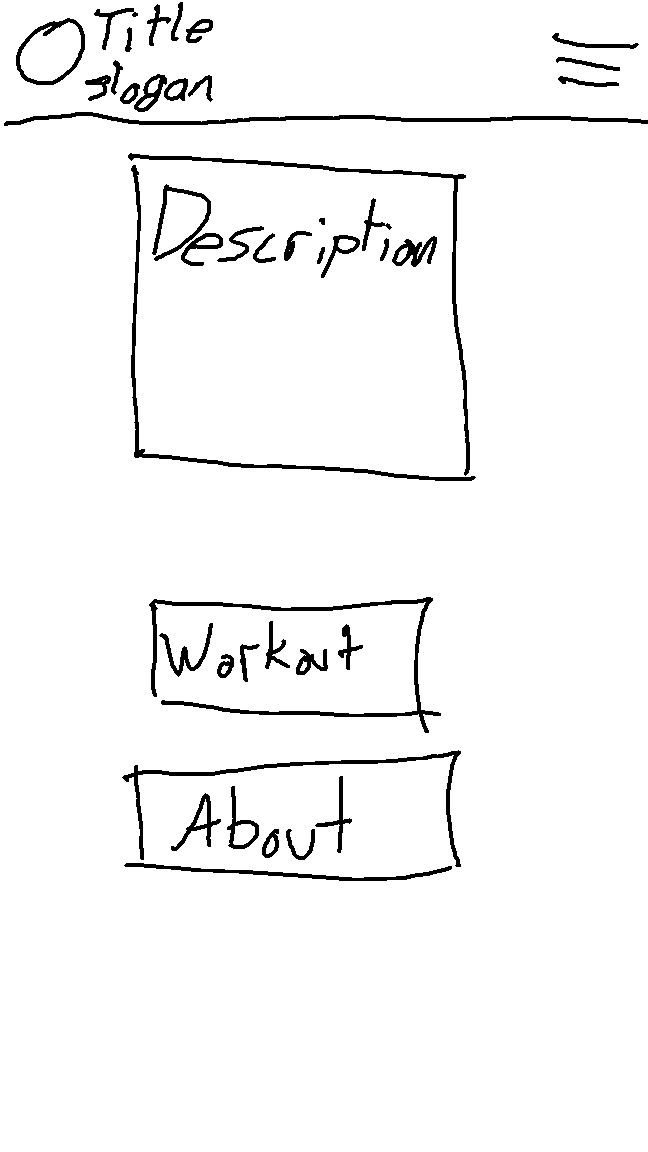 Title
slogan
Description
Workout
About